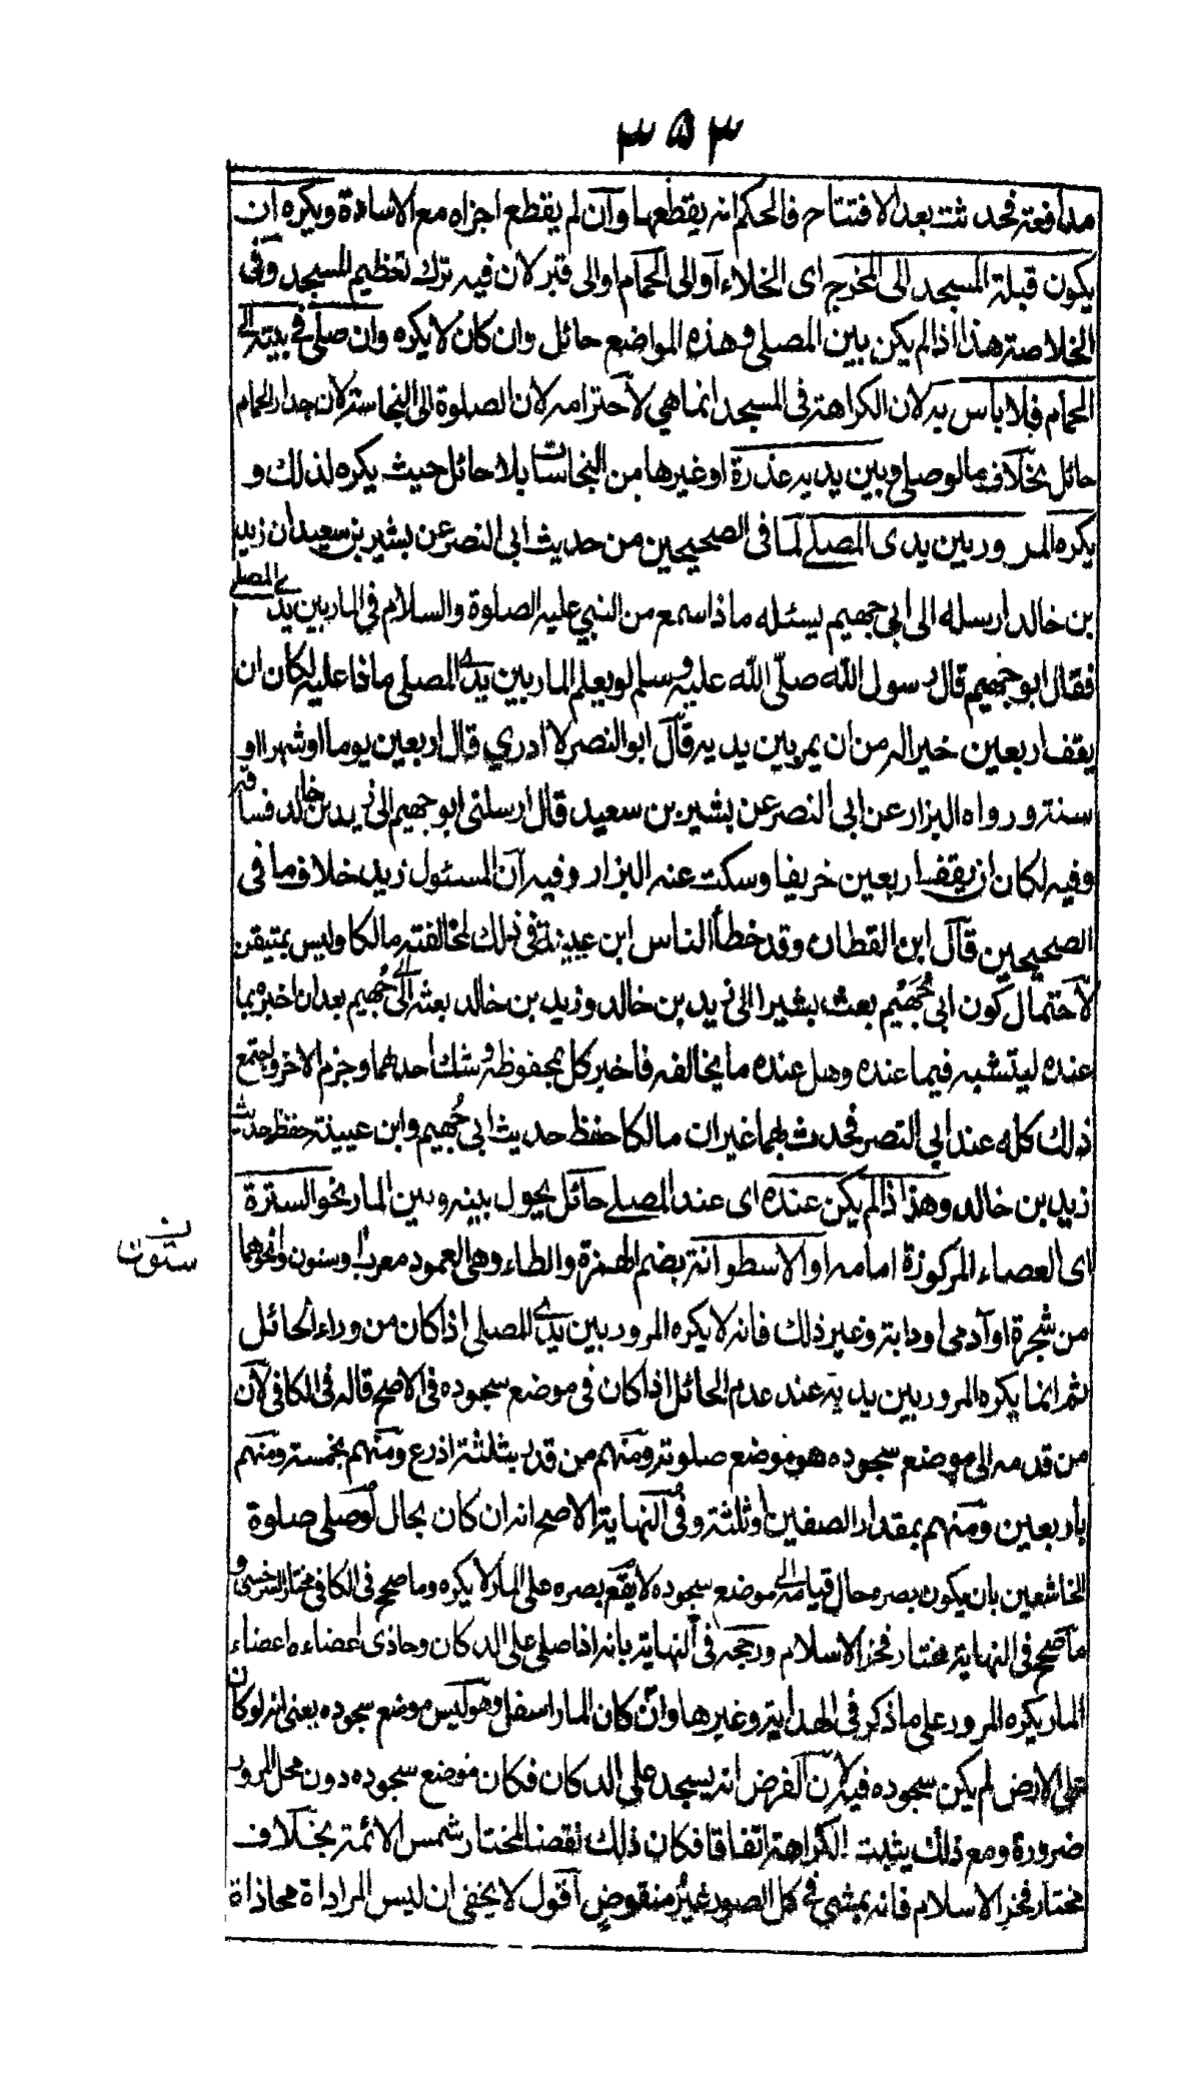 ٣٥٣
مدافعته فحدثت بعد الافتتاح فالحكم انه يقطعها وان لم يقطع اجزاه مع الاساءة ويكره ان
يكون قبلة المسجد الى المخرج اى الخلاء آوالى الحمام اوالى قبر لان فيه ترك تعظيم المسجد وفى
الخلاصة هذا اذا لم يكن بين المصلى وهذه المواضع حائل وان كان لايكره وان صلى فى بيته الى
الحمام فلا باس به لان الكراهة فى المسجد انما هي لاحترامه لان الصلوة الى النجاسة لان جدار الحمام
حائل بخلاف مالو صلى وبين يديه عذرة اوغيرها من النجاسات بلا حائل حيث يكره لذلك و
يكره المرور بين يدى المصلے لما فى الصحيحين من حديث ابى النصر عن بشير بن سعيد ان زيد
بن خالد ارسله الى ابى جهيم يسئله ماذا سمع من النبي عليه الصلوة والسلام فى المار بين يدے المصلے
فقال ابو جهيم قال رسول الله صلّى الله عليه وسلم لو يعلم المار بين يدے المصلى ماذا عليه لكان ان
يقف اربعين خيرا له من ان يمر بين يديه قال ابو النصر لا ادري قال اربعين يوما اوشهرا او
سنة ورواه البزار عن ابى النصر عن بشير بن سعيد قال ارسلنى ابو جهيم الى زيد بن خالد فساقه
وفيه لكان ان يقف اربعين خريفا وسكت عنه البزار وفيه آن المسئول زيد خلاف ما فى
الصحيحين قال ابن القطان وقد خطأ الناس ابن عيينة فى ذلك لمخالفته مالكا وليس بمتيقن
لاحتمال كون ابى جُهَيْم بعث بشيرا الى زيد بن خالد وزيد بن خالد بعثه الى جُهيم بعد ان اخبره بما
عنده ليتشبه فيما عنده وهل عنده ما يخالفه فاخبر كل بمحفوظه وشك احدهما وجزم الاخر واجتمع
ذلك كله عند ابي النصر فحدث بهما غير ان مالكا حفظ حديث ابى جُهيم وابن عيينة حفظ حديث
زيد بن خالد وهذا اذا لم يكن عنده اى عند المصلے حائل يحول بينه وبين المار نحو السترة
اى العصاء المركوزة امامه او الاسطوانة بضم الهمزة والطاء وهى العمود معرب اوستون ونحوهما
ستون
من شجرة او آدمى او دابة وغير ذلك فانه لا يكره المرور بين يدے المصلى اذا كان من وراء الحائل
ثم انما يكره المرور بين يديه عند عدم الحائل اذا كان فى موضع سجوده فى الاصح قاله فى الكافى لان
من قدمه الى موضع سجوده هو موضع صلوته ومنهم من قدر بثلثة اذرع ومنهم بخمسة ومنهم
باربعين ومنهم بمقدار الصفين او ثلثة وفى النهاية الاصح انه ان كان بحال لو صلى صلوة
الخاشعين بان يكون بصره حال قيامه الى موضع سجوده لا يقع بصره على المار لا يكره وما صحح فى الكافى مختار السرخسى و
ما صحح فى النهاية مختار فخر الاسلام ورجحه فى النهاية بانه اذا صلى على الدكان وحاذى اعضاءه اعضاء
المار يكره المرور على ما ذكر فى الهداية وغيرها وان كان المار اسفل وهو ليس موضع سجوده يعنى انه لو كان
على الارض لم يكن سجوده فيه لان الفرض انه يسجد على الدكان فكان موضع سجوده دون محل المرور
ضرورة ومع ذلك يثبت الكراهة اتفاقا فكان ذلك نقضا لمختار شمس الائمة بخلاف
مختار فخر الاسلام فانه يمشى فى كل الصور غير منقوض اقول لا يخفى ان ليس المراد اة محاذاة